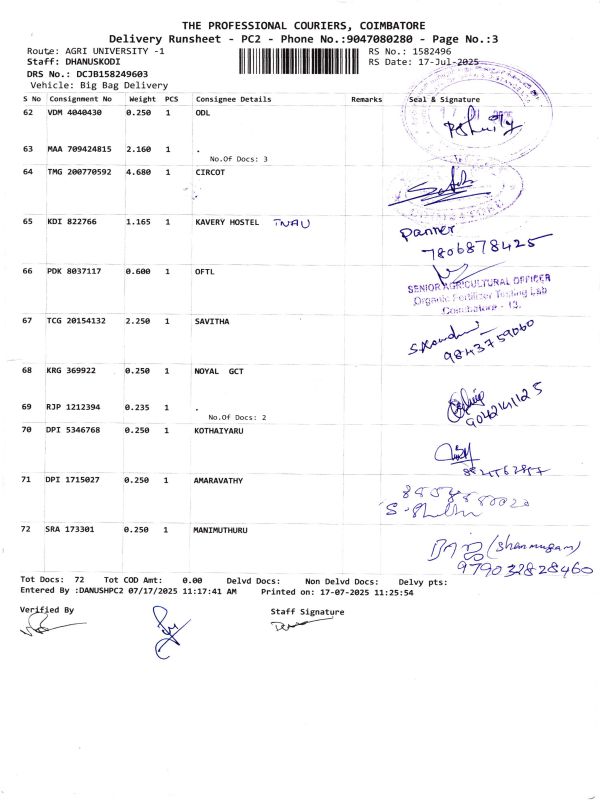 THE PROFESSIONAL COURIERS, COIMBATORE
Delivery Runsheet - PC2 - Phone No.:9047080280 - Page No.:3
Route: AGRI UNIVERSITY -1 RS No.: 1582496
Staff: DHANUSKODI RS Date: 17-Jul-2025
DRS No.: DCJB158249603
Vehicle: Big Bag Delivery
S No Consignment No Weight PCS Consignee Details Remarks Seal & Signature
62 VDM 4040430 0.250 1 ODL
63 MAA 709424815 2.160 1 .
No.Of Docs: 3
64 TMG 200770592 4.680 1 CIRCOT
65 KDI 822766 1.165 1 KAVERY HOSTEL TNAU
Panner
7806878425
66 PDK 8037117 0.600 1 OFTL
SENIOR AGRICULTURAL OFFICER
Organic Fertilizer Testing Lab
Coimbatore - 13.
67 TCG 20154132 2.250 1 SAVITHA
9843759060
68 KRG 369922 0.250 1 NOYAL GCT
69 RJP 1212394 0.235 1 .
No.Of Docs: 2
70 DPI 5346768 0.250 1 KOTHAIYARU
71 DPI 1715027 0.250 1 AMARAVATHY
72 SRA 173301 0.250 1 MANIMUTHURU
(Shanmugam)
Tot Docs: 72 Tot COD Amt: 0.00 Delvd Docs: Non Delvd Docs: Delvy pts:
Entered By :DANUSHPC2 07/17/2025 11:17:41 AM Printed on: 17-07-2025 11:25:54
Verified By Staff Signature